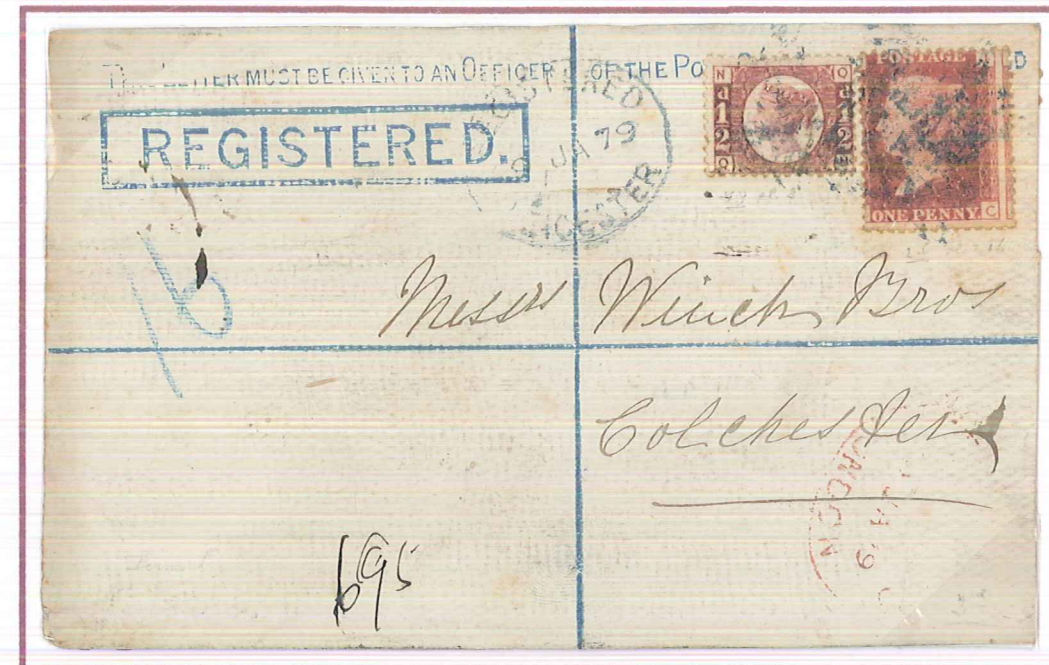 LETTER MUST BE GIVEN TO AN OFFICER OF THE PO
REGISTERED.
REGISTERED
JA 79
½ ½
POSTAGE
ONE PENNY C
N O
O
Messrs Winch Bros
Colchester
LONDON
695